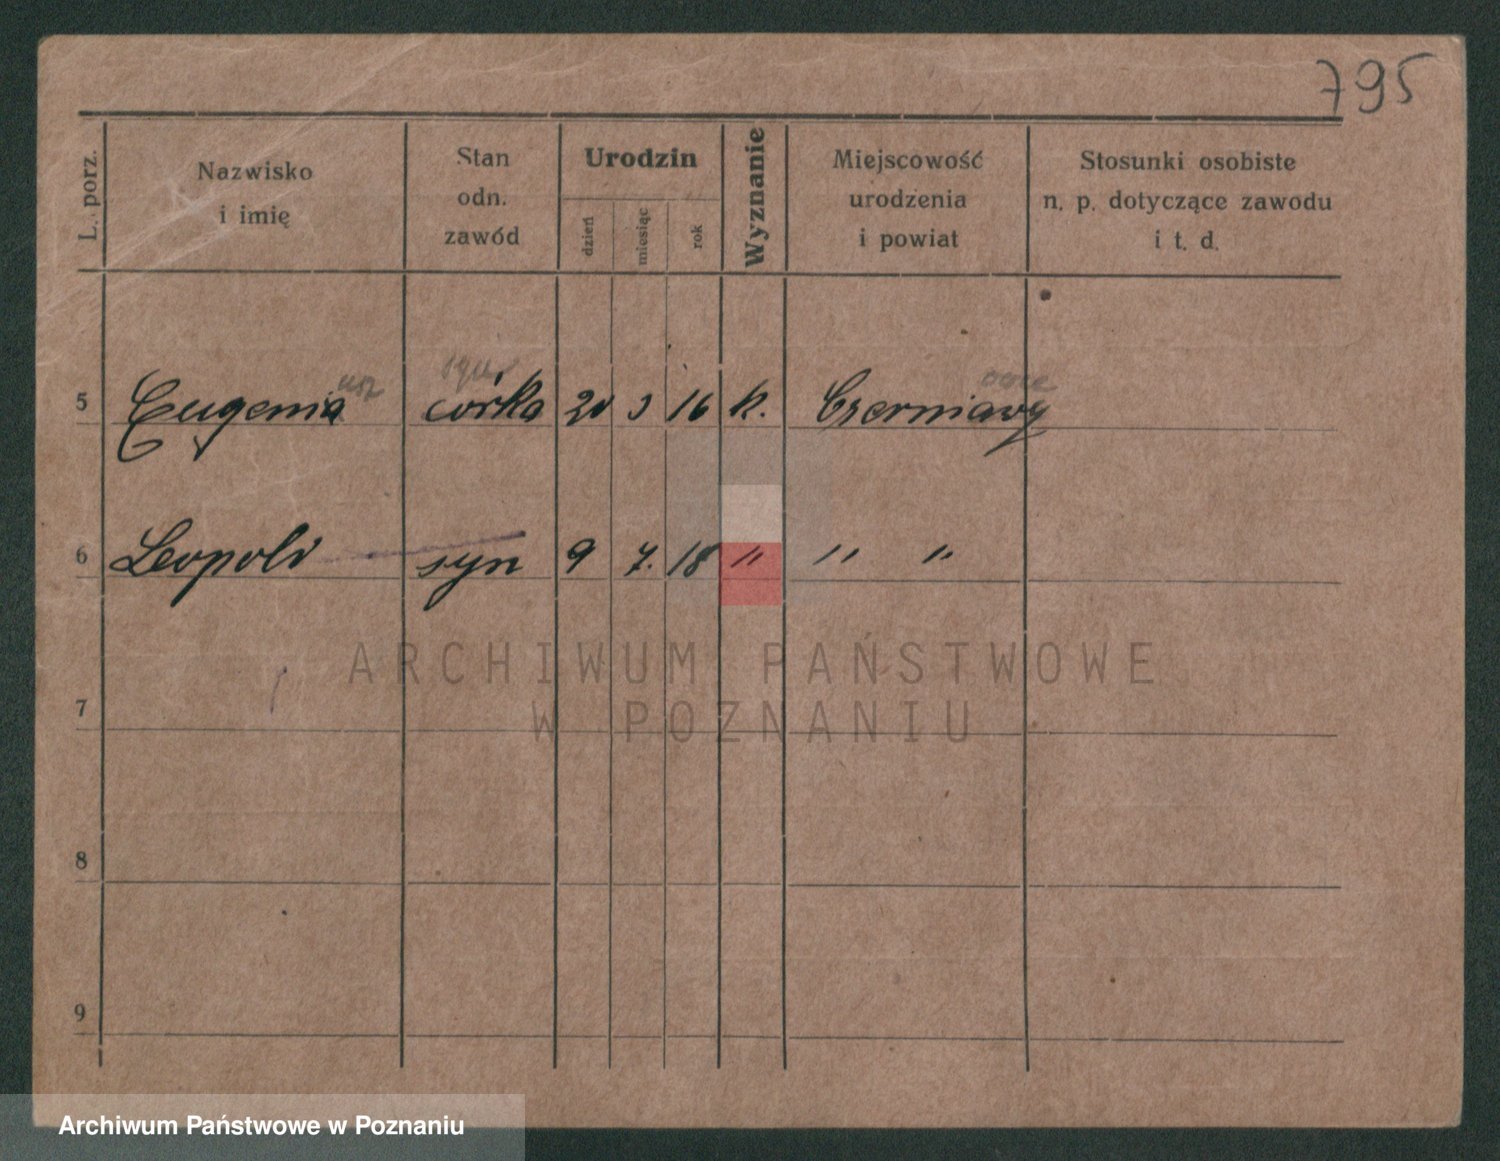 795
L. porz.
Nazwisko
i imię
Stan
odn.
zawód
Urodzin
dzień
miesiąc
rok
Wyznanie
Miejscowość
urodzenia
i powiat
Stosunki osobiste
n. p. dotyczące zawodu
i t. d.
syn
5 Eugenia córka 20 3 16 k.
6 Leopold syn 9 7. 18 " " "
ARCHIWUM PAŃSTWOWE
W POZNANIU
7
8
9
Archiwum Państwowe w Poznaniu